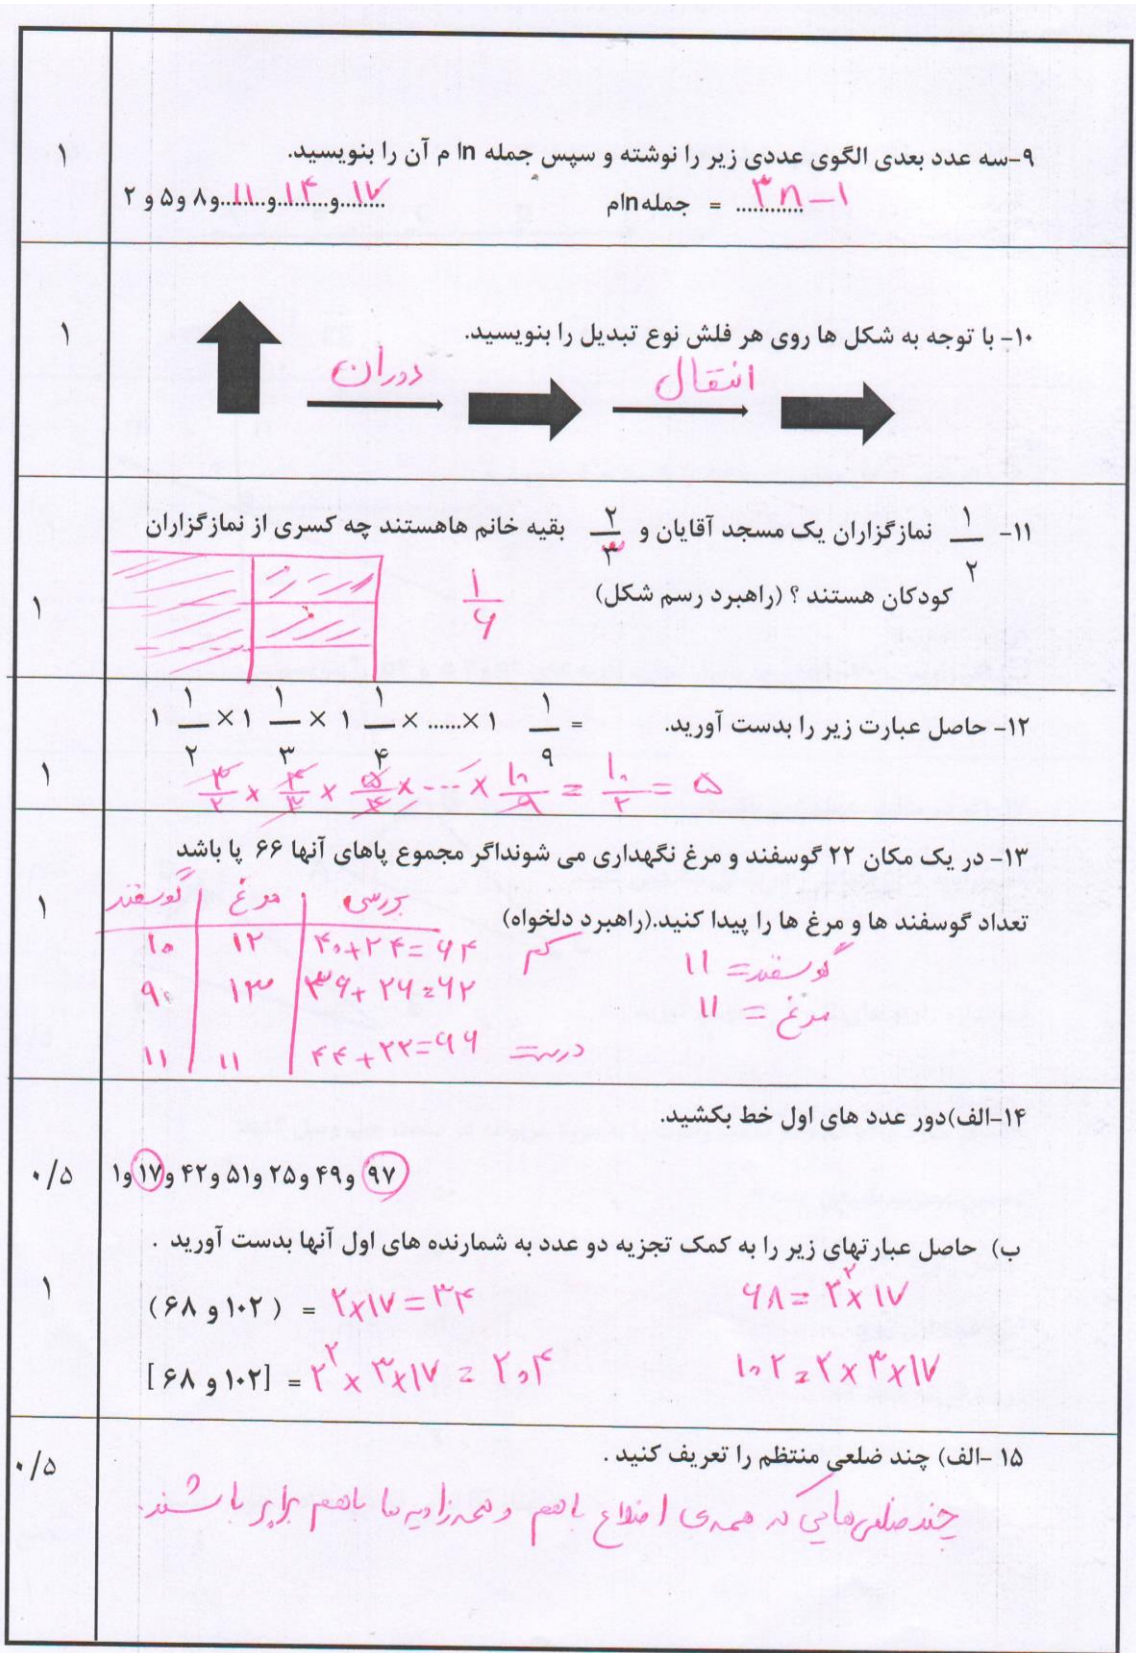 ۹-سه عدد بعدی الگوی عددی زیر را نوشته و سپس جمله n ام آن را بنویسید.
۱
۲ و ۵ و ۸ و ...۱۱... و ...۱۴... و ...۱۷...
جمله n ام = ۳n-۱
۱۰- با توجه به شکل ها روی هر فلش نوع تبدیل را بنویسید.
۱
دوران
انتقال
۱۱- ۱/۲ نمازگزاران یک مسجد آقایان و ۲/۳ بقیه خانم هاهستند چه کسری از نمازگزاران
کودکان هستند ؟ (راهبرد رسم شکل)
۱/۶
۱
۱۲- حاصل عبارت زیر را بدست آورید.
۱ ۱/۲ × ۱ ۱/۳ × ۱ ۱/۴ × ...... × ۱ ۱/۹ =
۳/۲ × ۴/۳ × ۵/۴ × --- × ۱۰/۹ = ۱۰/۲ = ۵
۱
۱۳- در یک مکان ۲۲ گوسفند و مرغ نگهداری می شونداگر مجموع پاهای آنها ۶۶ پا باشد
تعداد گوسفند ها و مرغ ها را پیدا کنید.(راهبرد دلخواه)
۱
گوسفند | مرغ | بررسی
۱۰ | ۱۲ | ۴۰+۲۴=۶۴ کم
۹ | ۱۳ | ۳۶+۲۶=۶۲
۱۱ | ۱۱ | ۴۴+۲۲=۶۶ درست
گوسفند = ۱۱
مرغ = ۱۱
۱۴-الف)دور عدد های اول خط بکشید.
۱ و ۱۷ و ۴۲ و ۵۱ و ۲۵ و ۴۹ و ۹۷
۰/۵
ب) حاصل عبارتهای زیر را به کمک تجزیه دو عدد به شمارنده های اول آنها بدست آورید .
۱
(۶۸ و ۱۰۲) = ۲×۱۷=۳۴
۶۸ = ۲² × ۱۷
[۶۸ و ۱۰۲] = ۲² × ۳×۱۷ = ۲۰۴
۱۰۲ = ۲×۳×۱۷
۱۵ -الف) چند ضلعی منتظم را تعریف کنید .
۰/۵
چند ضلعی هایی که همه ی اضلاع باهم و همه زاویه ها باهم برابر باشند.